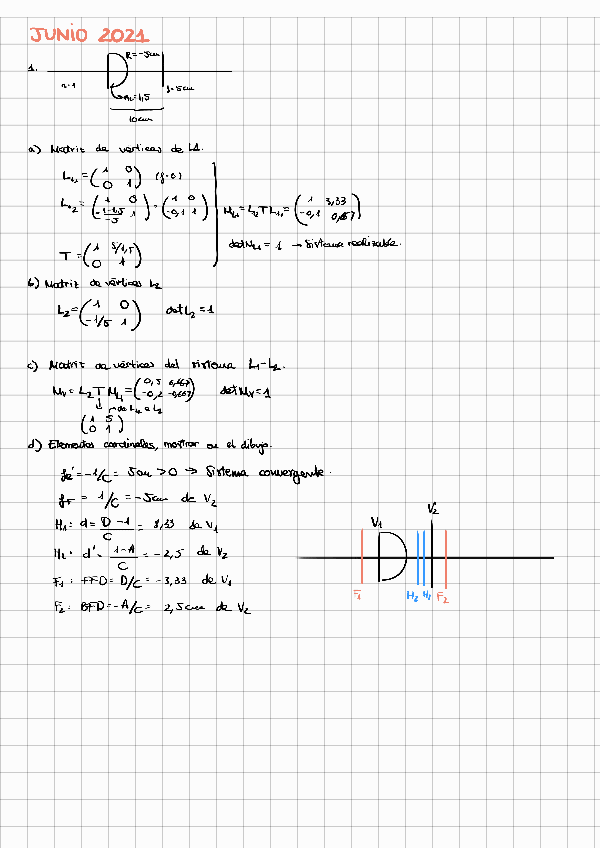 JUNIO 2021
1.
R=-5cm
n=1
n=1,5
f=5cm
10cm
a) Matriz de vertices de L1.
L₁,₁ = (1 0; 0 1) (f=∞)
L₁,₂ = (1 0; -(1-1,5)/-5 1) = (1 0; -0,1 1)
M_L1 = L₂ T L₁,₁ = (1 3,33; -0,1 0,667)
T = (1 5/1,5; 0 1)
det M_L1 = 1 → Sistema realizable.
b) Matriz de vértices L2
L₂ = (1 0; -1/5 1) det L₂ = 1
c) Matriz de vértices del sistema L1-L2.
Mv = L₂ T M_L1 = (0,5 6,667; -0,2 -0,667) det Mv = 1
↳ de L1 a L2
(1 5; 0 1)
d) Elementos cardinales, mostrar en el dibujo.
fe' = -1/C = 5cm > 0 → Sistema convergente.
= 1/C = -5cm de V2
H1: d = (D-1)/C = 8,33 de V1
H2: d' = (1-A)/C = -2,5 de V2
F1: FFD = D/C = -3,33 de V1
F2: BFD = -A/C = 2,5cm de V2
V1
V2
F1
H2
H1
F2